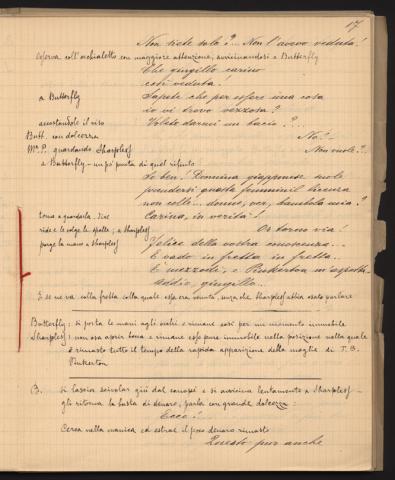 17
Non siete sola?... Non l'avevo veduta!
osserva coll'occhialetto con maggiore attenzione, avvicinandosi a Butterfly
Che gingillo carino
così veduta.
a Butterfly Sapete che per essere una cosa
io vi trovo vezzosa?
accostandole il viso Volete darmi un bacio?...
Butt. con dolcezza No?-
Mrs P. guardando Sharpless Non vuole?..
a Butterfly - un po' punta di quel rifiuto
Fa ben! Donnina giapponese
prendersi questa femminil licenza
non colli... donne; ver, bambola mia?
torna a guardarla. Indi Carina, in verità!
ride e le volge le spalle; a Sharpless Or torno via!
porge la mano a Sharpless Felice della vostra
E vado in fretta in fretta..
È mezzodì, e Pinkerton m'aspetta
Addio, gingillo...
E se ne va colla fretta colla quale essa era venuta, senza che Sharpless abbia osato parlare
Butterfly: si porta le mani agli occhi e rimane così per un momento immobile
Sharpless: non osa aprir bocca e rimane esso pure immobile nella posizione nella quale
è rimasto tutto il tempo della rapida apparizione della moglie di F. B.
Pinkerton
B. si lascia scivolar giù dal canapè e si avvicina lentamente a Sharpless
gli ritorna la busta di denaro; parla con grande dolcezza:
Ecco!
Cerca nella manica ed estrae il poco denaro rimasto
Questo pur anche